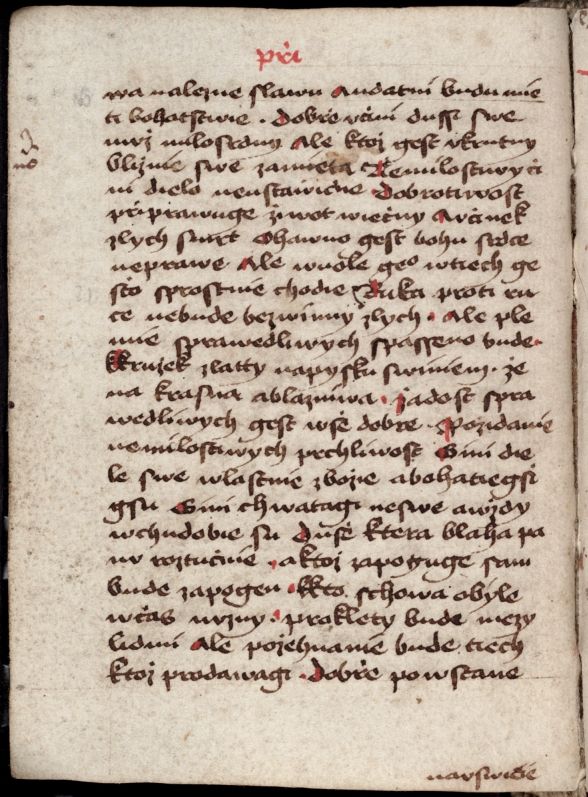 při
wa nalezne slawu Audatni budu mie
ti bohatstwie . dobrze czini dussi swe
muz milosrdny Ale ktoz gest vkrutny
bliznie swe zamieta Nemilostiwy czi
ni dielo neustawicne Dobrotiwost
prziprawuge ziwot wieczny Avczinek
zlych smrt Ohawno gest bohu srdce
neprawe Ale wuole geo wtiech ge
sto sprostnie chodie Ruka proti ru
ce nebude bezwinny zlych . Ale ple
mie sprawedliwych spasseno bude .
Kruzek zlatty napysku swiniem . ze
na krasna ablazniwa . zadost spra
wedliwych gest wsse dobre . Pozidanie
nemilostiwych prchliwost Gini die
le swe wlastnie zbozie abohatiegssi
gsu Gini chwatagi neswe awzdy
wchudobie su Dusse ktera blaha pa
nu roztucznie . aktoz zapoguge sam
bude zapogen . kto schowa obyle
wczas nuzny . proklety bude mezy
lidmi Ale pozehnanie bude tiech
ktoz prodawagi . dobrze powstane